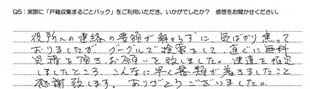 Q5：実際に「戸籍収集まるごとパック」をご利用いただき、いかがでしたか？ 感想をお聞かせください。
役所への連絡の書類が解らずに、気ばかり焦って
おりましたが、グーグルで検索をして、直ぐに無料
見積を頂き、お願いを致しました。速達を指定
しましたところ、こんなに早く書類が届きましたこと
感謝致します。ありがとうございました。